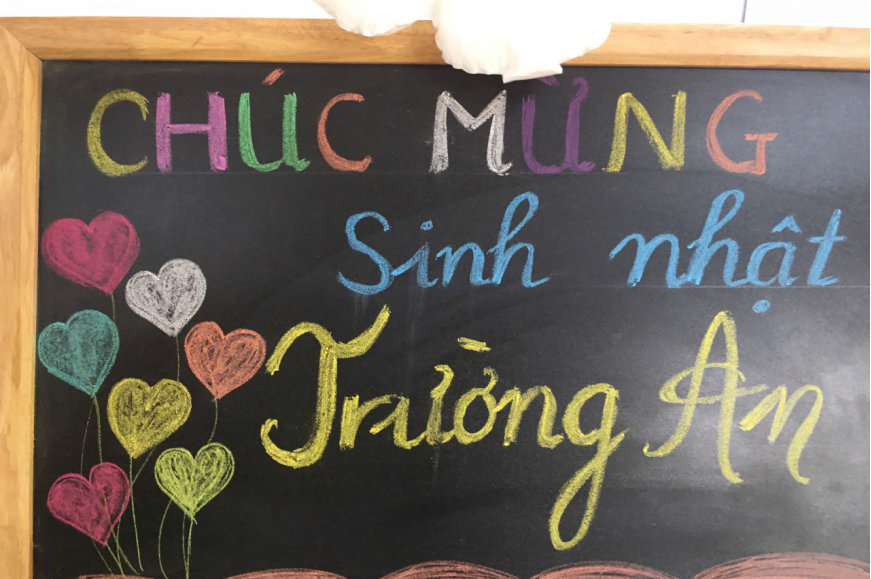 CHÚC MỪNG
Sinh nhật
Trường An